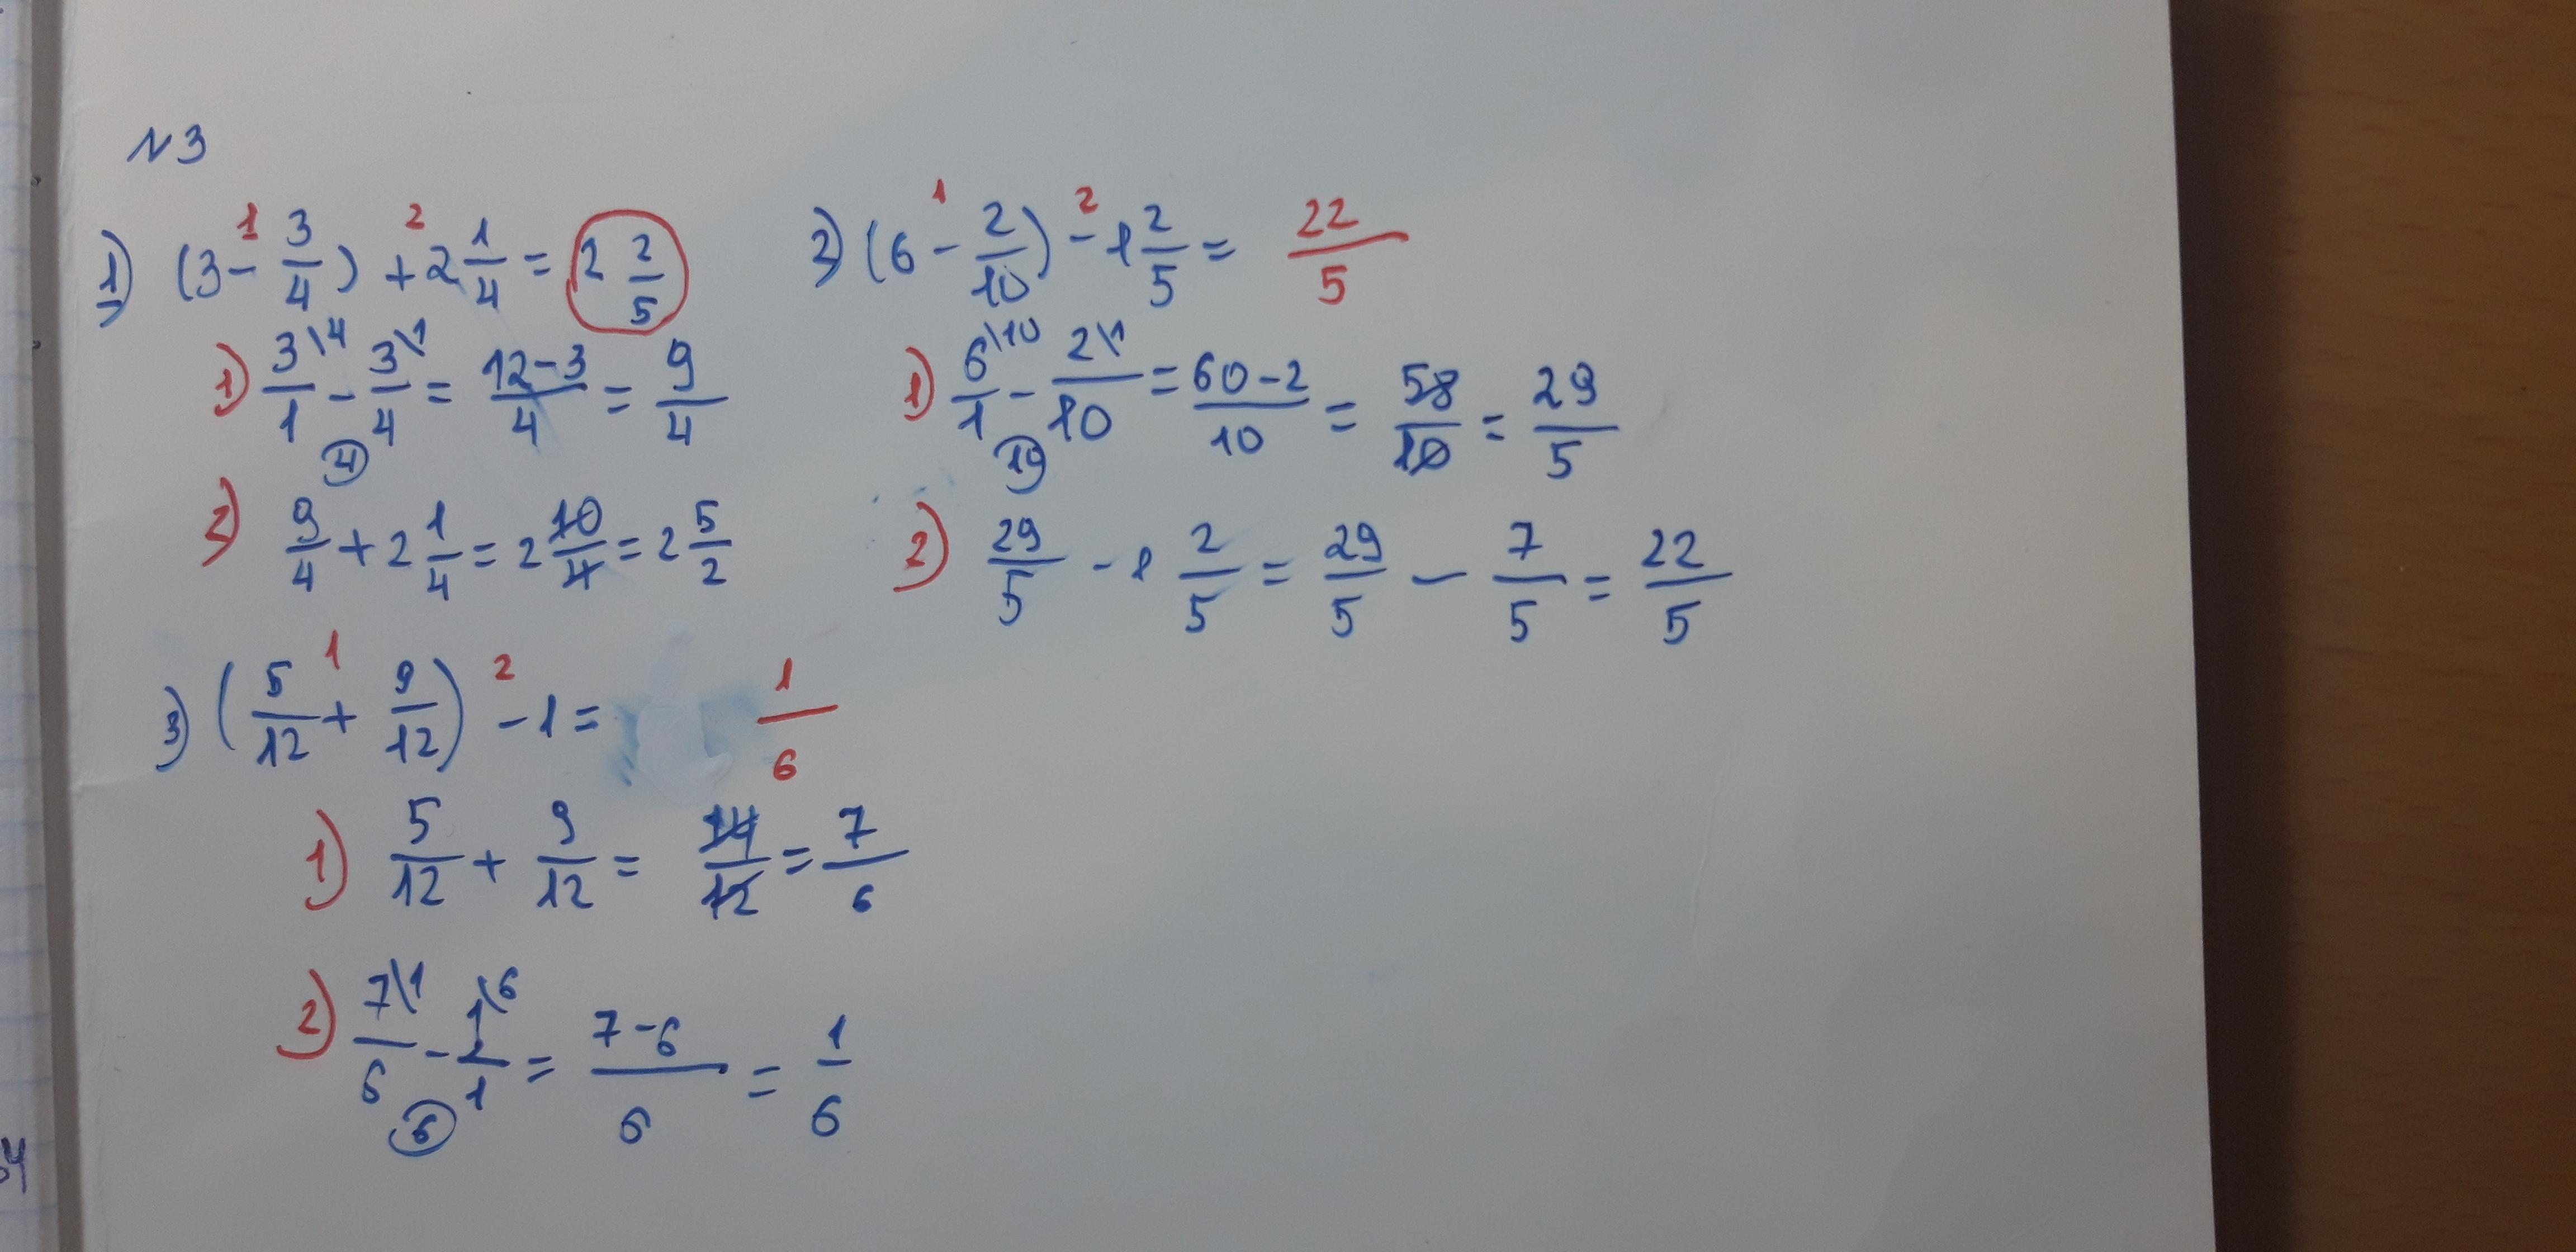 N3
1) (3 - 3/4) + 2 1/4 = 2 2/5
1 2
1) 3\4/1 - 3\1/4 = 12-3/4 = 9/4
4
2) 9/4 + 2 1/4 = 2 10/4 = 2 5/2
2) (6 - 2/10) - 1 2/5 = 22/5
1 2
1) 6\10/1 - 2\1/10 = 60-2/10 = 58/10 = 29/5
10
2) 29/5 - 1 2/5 = 29/5 - 7/5 = 22/5
3) (5/12 + 9/12) - 1 = 1/6
1 2
1) 5/12 + 9/12 = 14/12 = 7/6
2) 7\1/6 - 1\6/1 = 7-6/6 = 1/6
6